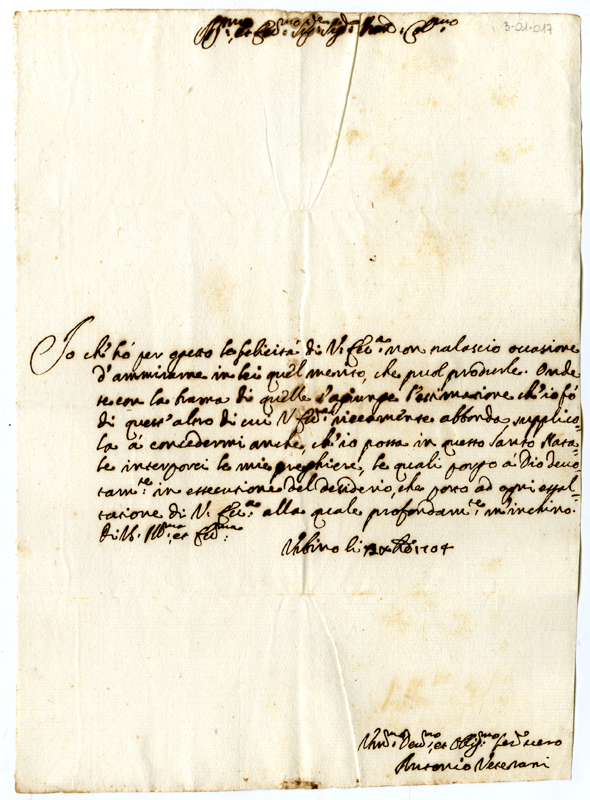 3-01-017
Ill.mo et Ecc.mo Sig.re Sig.re Pron Col.mo
Io ch'hò per ogetto la felicità di V. Ecc.za non tralascio occasione
d'ammirarne in lei quel merito, che puol produrle. Onde
se con la brama di quelle s'agiunge l'estimazione ch'io fò
di quest'altro di cui V. Ecc.za riccamente abbonda, supplico-
la à concedermi anche, ch'io possa in questo Santo Nata-
le interporci le mie preghiere, le quali porgo à Dio devo-
tam.te in essecuzione del desiderio, che porto ad ogni essal-
tazione di V. Ecc.za alla quale profondam.te m'inchino.
di V. Ill.ma et Ecc.ma
Urbino li Xbre 1704
Um.mo Dev.mo et Oblig.mo ser.e vero
Antonio Veterani